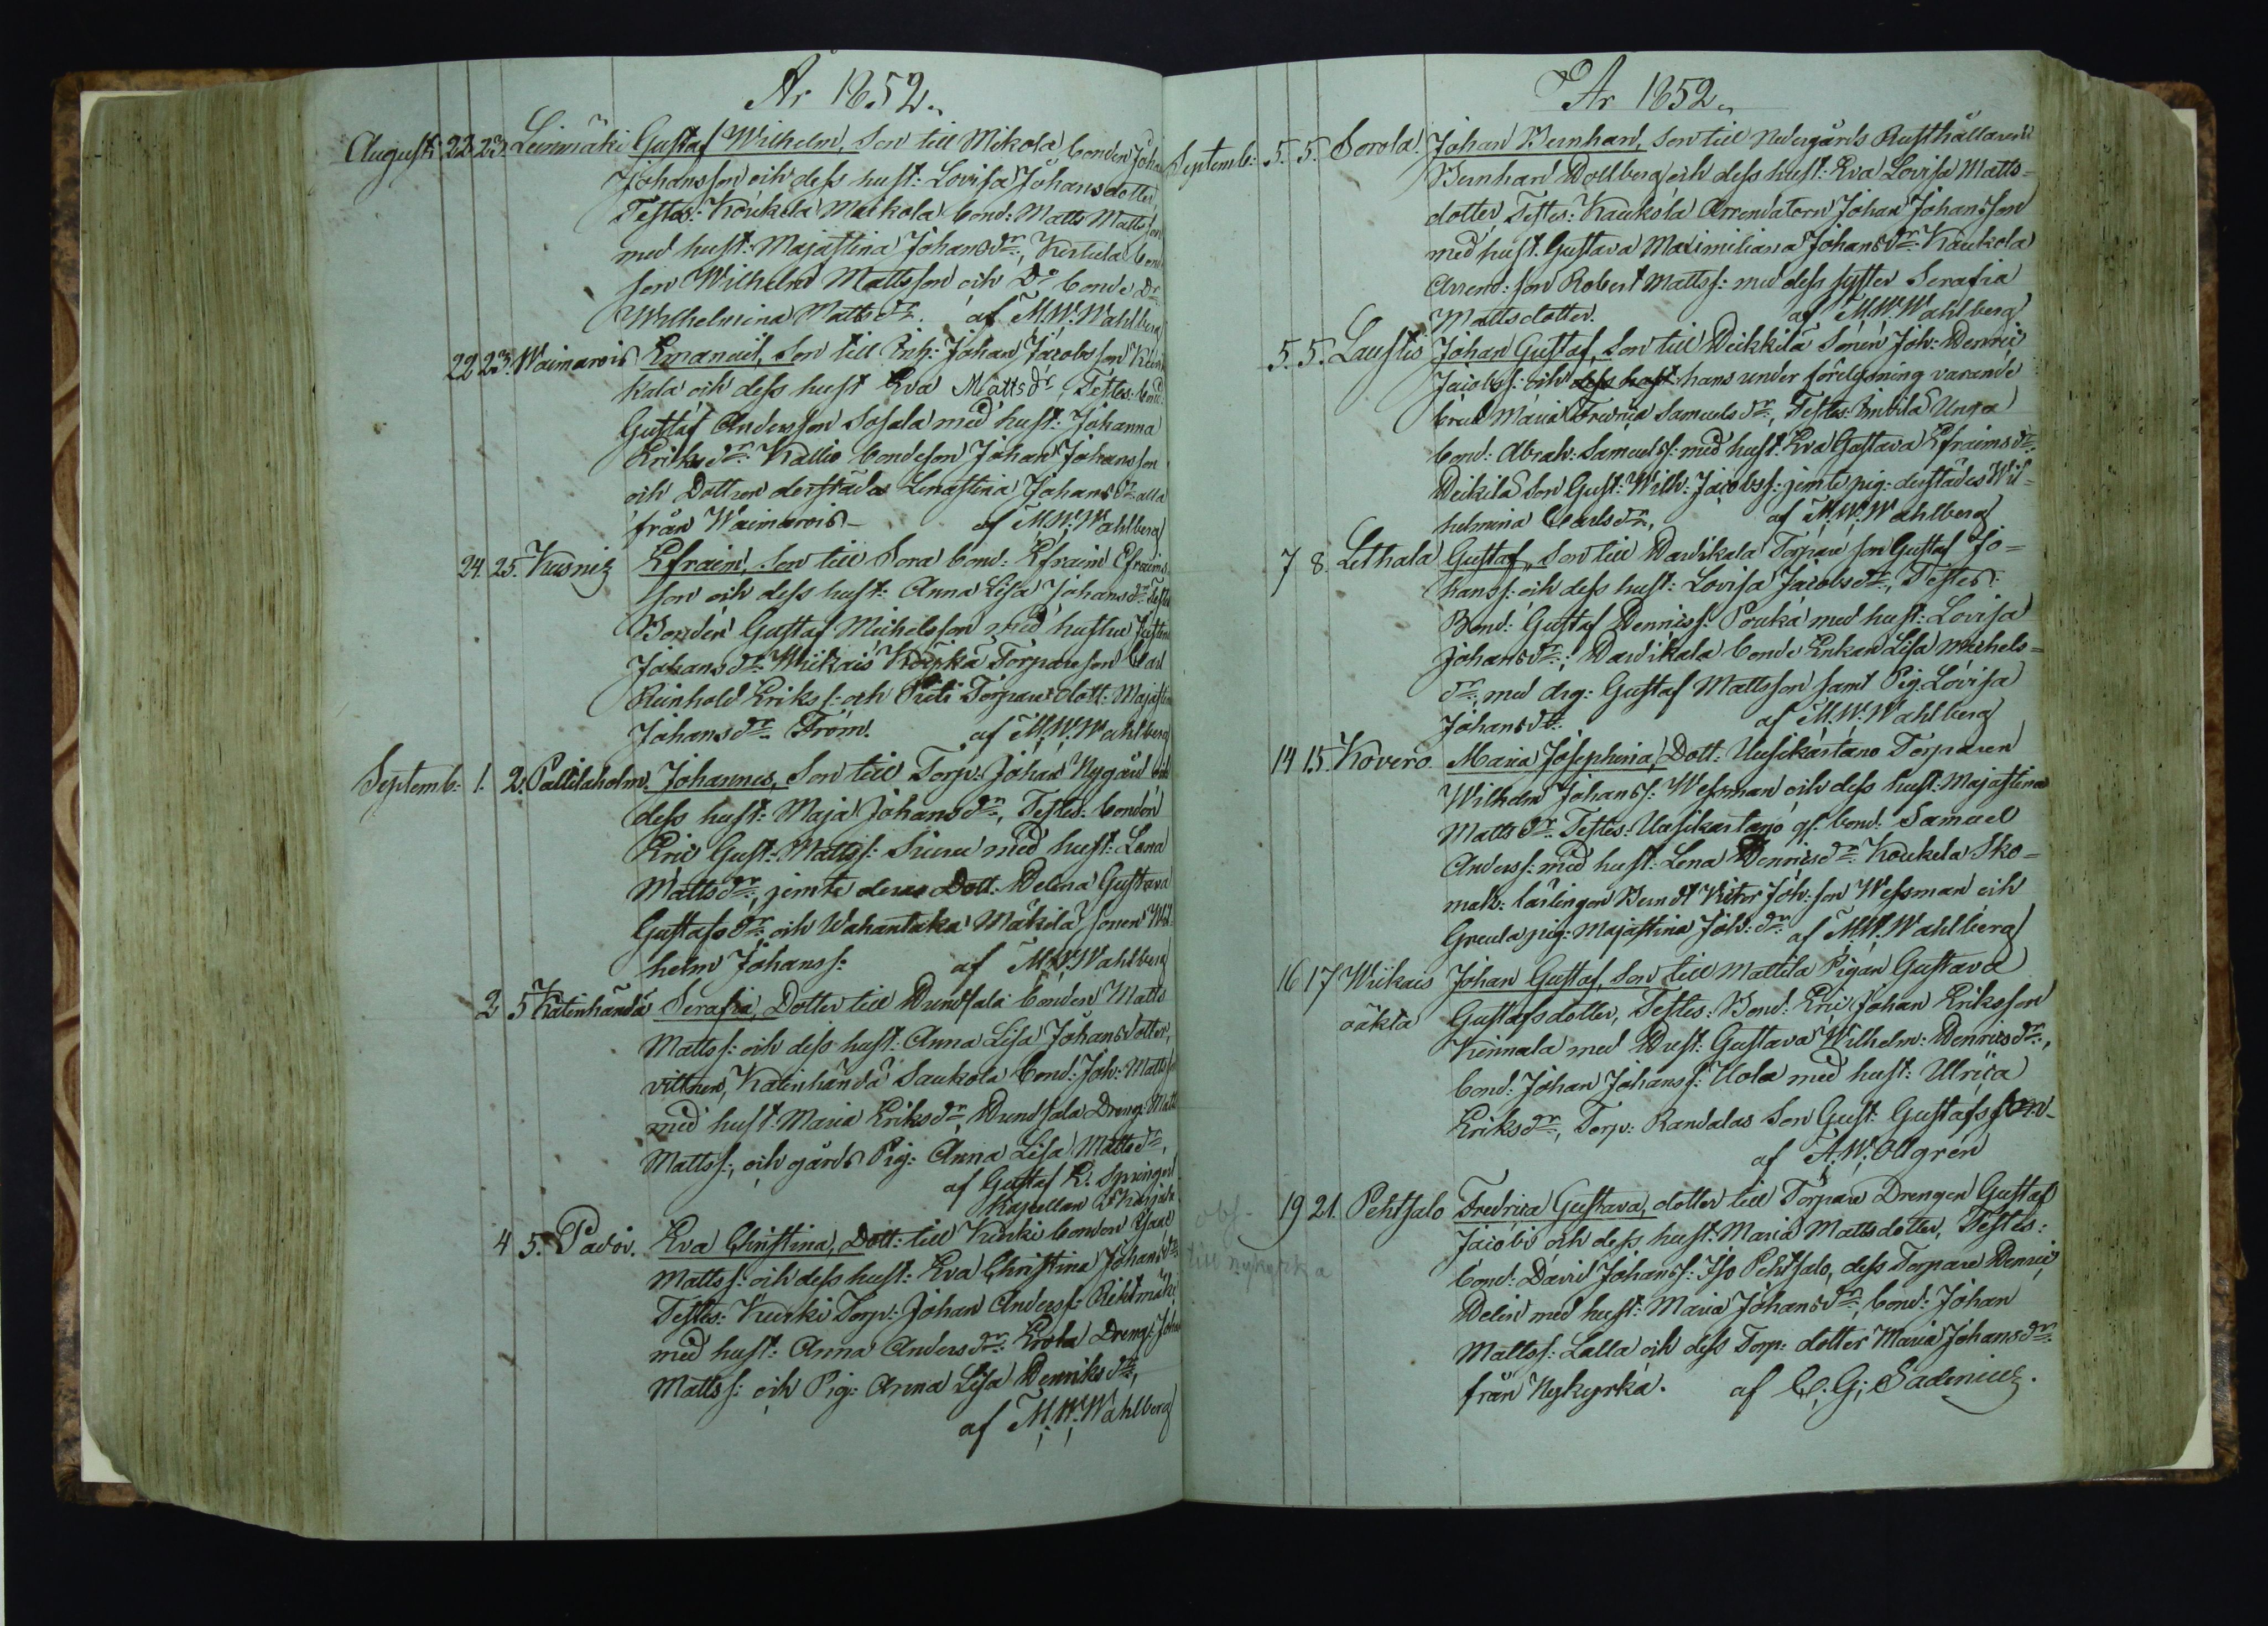 År 1852.
August: 22 23. Leinmäki Gustaf Wilhelm, Son till Mikola bonden Joha
Johansson och dess hust: Lovisa Johansdotter,
Testes: Koukela Markola bond: Matts Mattsson
med hust: Majastina Johansdr, Kirkula bond
son Wilhelm Mattsson och Do bonde Dr
Wilhelmina Matts dr. af M.W. Wahlberg
22 23. Waimarois Emanuel, Son till Johan Jacobsson
kala och dess hust Eva Matts dr, Testes: bond:
Gustaf Andersson Sosala med hust: Johanna
Eriks dr. Kallio bondeson Johan Johansson
och Dottren derstädes Lenastina Johansdr alla
från Waimarois - af M.W. Wahlberg
24. 25. Kusni Efraim, Son till Sora bond: Efraim Efraims
son och dess hust: Anna Lisa Johansdr Testes
Bonden Gustaf Michelsson med hustru Justina
Johansdr. Wiikais Torpareson Carl
Reinhold Erikss: och Torpare dott: Majastina
Johansdr. Fröm. af M.W. Wahlberg
Septemb: 1. 2. Paltilaholm. Johannes, Son till Torp: Johan Nygård och
dess hust: Maja Johansdr, Testes: bonden
Eric Gust: Mattss: med hust: Lena
Mattsdr: jemte deras Dott: Helena Gustava
Gustafsdr: och Wahantaka Mäkilä sonen Wil-
helm Johanss: af M.W. Wahlberg
2 5 Katinhändä Serafia, Dotter till Hundsala bonden Matts
Mattss: och dess hust: Anna Lisa Johansdotter,
vittnen, Katinhändä Saukola bond: Joh: Mattss
med hust. Maria Eriksdr, Hundsala Dreng: Matts
Mattss:, och gårds Pig: Anna Lisa Mattsdr,
af Gustaf E. Springert
Kapellan i
4 5. Padoi. Eva Christina, Dott: till Kurki bonden Isaac
Mattss: och dess hust: Eva Christina Johansdr
Testes: Kurki Torp: Johan Anderss:
med hust: Anna Andersdr: Erola Dreng: Johan
Mattss: och Pig: Anna Lisa Henriksdr,
af M.W. Wahlberg
År 1852.
Septemb: 5. 5. Sorola. Johan Bernhard, Son till Nedergårds Rusthållaren
Bernhard Hollberg och dess hust: Eva Lovisa Matts-
dotter, Testes: Kaukola Arrendatorn Johan Johansson
med hust. Gustava Maximiliana Johansdr: Kaukola
Arrend: son Robert Mattss: med dess syster Serafia
Mattsdotter. af M.W. Wahlberg
5. 5. Laustis Johan Gustaf, Son till Heikkilä Sonen Joh: Henric
Jacobss: och dess hust hans under förelysning varande
brud Maria Fredrica Samuelsdr, Testes: Unga
bond: Abrah: Samuelss: med hust. Eva Gustava Efraimsdr:
Heikilä Son Gust: Wilh: Jacobss: jemte pig: derstädes Wil-
helmina Carlsdr, af M.W. Wahlberg
7 8. Lethala Gustaf, Son till Pardikala Torpare son Gustaf Jo-
hanss: och dess hust: Lovisa Jacobsdr, Testes:
Bond: Gustaf Henricss: Pouka med hust: Lovisa
Johansdr: Pardikala bonde Enkan Lisa Michels-
dr: med drg: Gustaf Mattsson samt Pig: Lovisa
Johansdr: af M.W. Wahlberg
14 15. Kovero. Maria Josephina, Dott: Uusikartano Torparen
Wilhelm Johanss: Wessman och dess hust: Majastina
Matts dr. Testes: Uusikartano gs: bond: Samuel
Anderss: med hust: Lena Henricsdr: Koukela Sko-
mak: lärlingen Berndt Victor Joh: son Wessman och
Greula pig: Majastina Joh: dr: af M.W. Wahlberg
16 17 Wiikais Johan Gustaf, Son till Mattila Pigan Gustava
oäkta Gustafsdotter, Testes: Bond: Eric Johan Eriksson
Kinnala med Hust: Gustava Wilhelm: Henricsdr,
bond: Johan Johanss: Uola med hust: Ulrica
Eriksdr, Torp: Randalas Son Gust: Gustafsson
af A.W. Ollgren
obs- 19 21. Pehtsalo Fredrica Gustava, dotter till Torpare Drengen Gustaf
till nykyrka Jacobs och dess hust: Maria Mattsdotter, Testes:
bond: David Johanss: Iso Pehtsalo, dess Torpare Henric
Helin med hust: Maria Johansdr, bond: Johan
Mattss: Lalla och dess Torp: dotter Maria Johansdr:
från Nykyrka. af C.G. Sadenius.